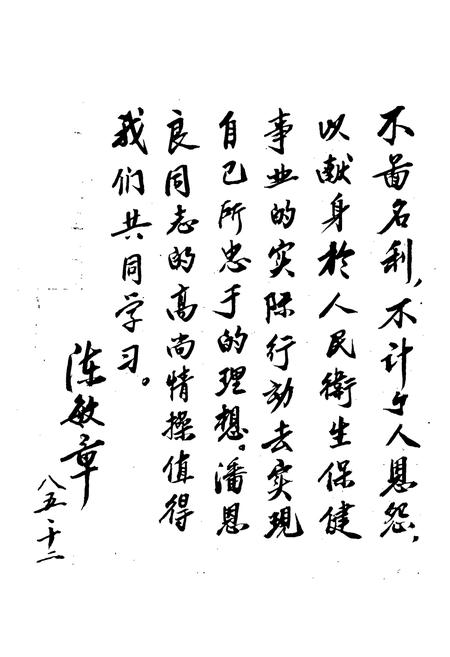 不啚名利，不计个人恩怨，
以献身於人民衛生保健
事业的实际行动去实现
自己所忠于的理想。潘恩
良同志的高尚情操值得
我们共同学习。
陈敏章
八五、十二